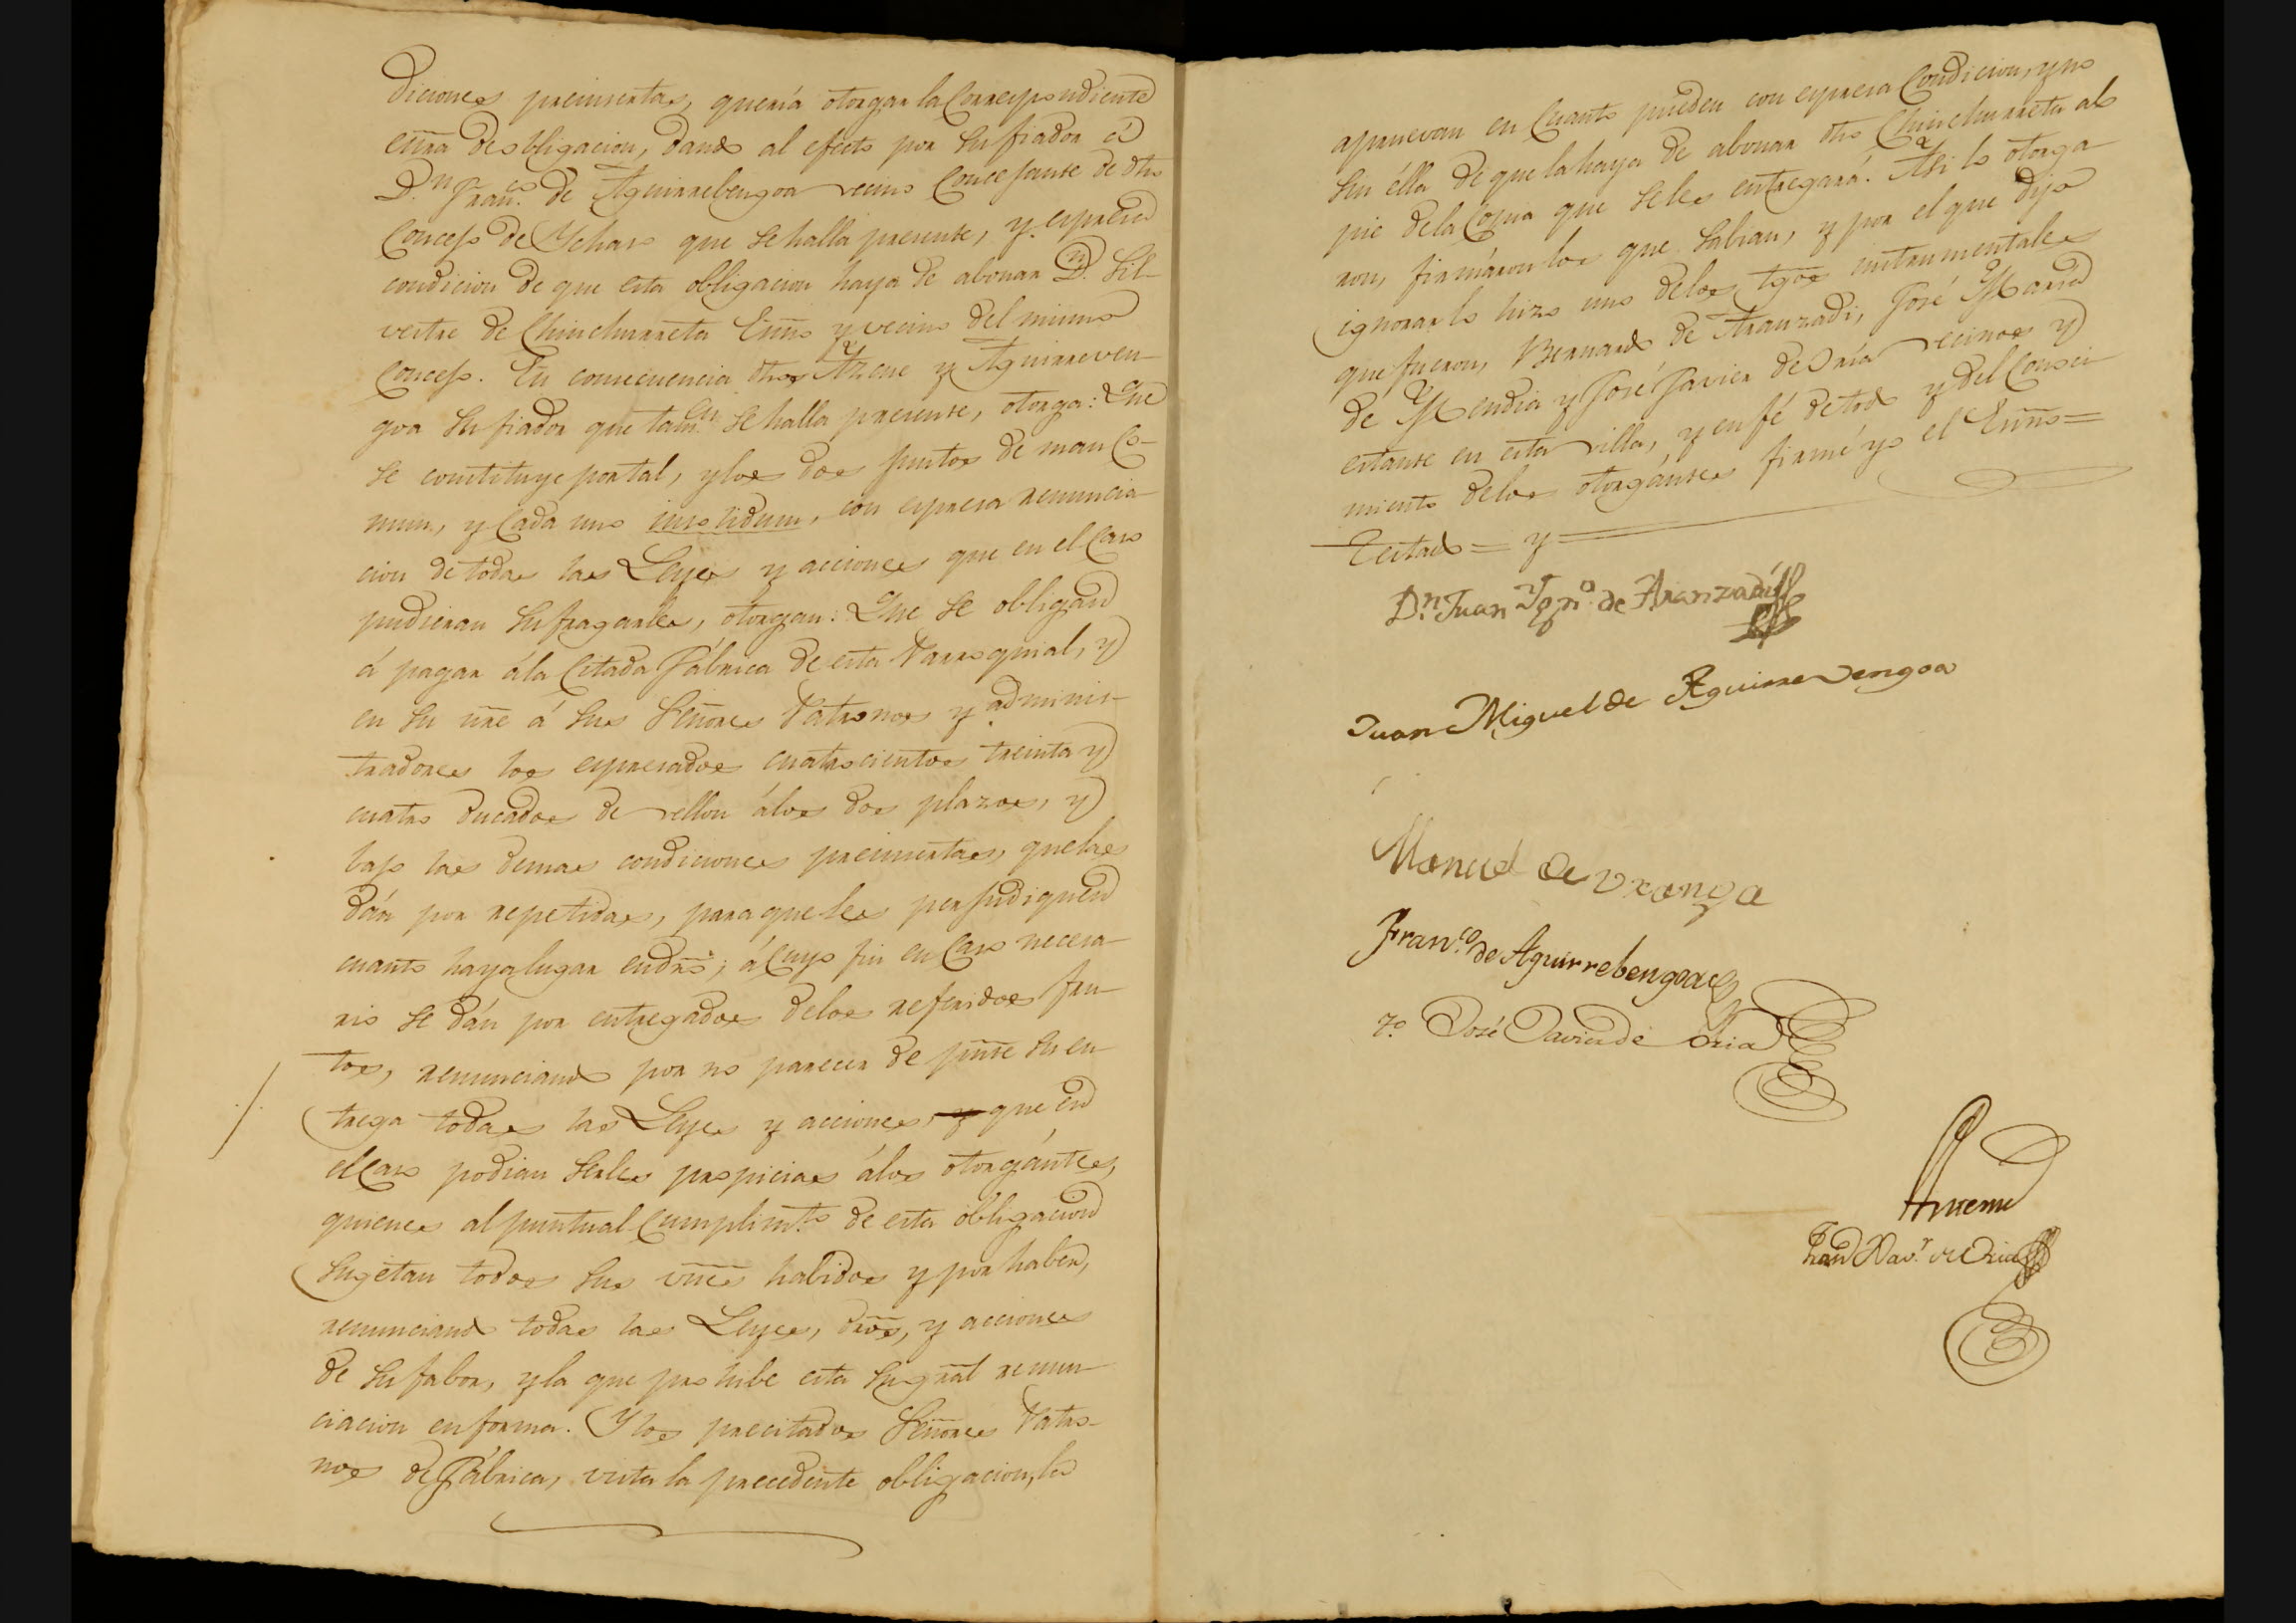 diciones preinsertas, quería otorgar la Correspondiente
escrra de obligacion, dando al efecto por su fiador á
D.n Fran.co de Aguirrebengoa vecino Concejante de dho
Concejo de Ychaso que se halla presente, y espresa
condicion de que esta obligacion haya de abonar D.n Sil-
vestre de Chinchurreta Esno y vecino del mismo
Concejo. En consecuencia dhos Azcue y Aguirreven-
goa su fiador que tamen se halla presente, otorga: Que
se constituye por tal, y los dos juntos de man Co-
mun, y Cada uno insolidum, con espresa renuncia-
cion de todas las Leyes y acciones que en el Caso
pudieran sufragarles, otorgan: Que se obligan
á pagar á la Citada Fábrica de esta Parroquial, y
en su nre á sus Señores Patronos y adminis-
tradores los espresados cuatrocientos treinta y
cuatro ducados de vellon álos dos plazos, y
bajo las demas condiciones preinsertas, que las
dán por repetidas, para que les perjudiquen
cuanto haya lugar en dro; á Cuyo fin en Caso necesa-
rio se dán por entregados de los referidos fru-
tos, renunciando por no parecer de pnte su en-
trega todas las Leyes y acciones, y que en
el Caso podian serles propicias álos otorgántes,
quienes al puntual Cumplimto de esta obligacion
sugetan todos sus vnes habidos y por haber,
renunciando todas las Leyes, dros, y acciones
de su fabor, y la que prohibe esta su gral renun-
ciacion en forma. Y los precitados Señores Patro-
nos de Fábrica, vista la precedente obligacion, la
apruevan en Cuanto pueden con espresa Condicion, y no
sin élla de que la haya de abonar dho Chinchurreta al
pie de la Copia que se les entregará. Asi lo otorga-
ron, firmáron los que sabian, y por el que dijo
ignorar lo hizo uno de los tgos instrumentales
que fueron, Bernardo de Aranzadi, José Maria
de Mendia y José Javier de Oria vecinos y
estante en esta villa, y en fé de todo y del Conoci-
miento de los otorgántes firmé yo el Esno=
Testado= y=
D.n Juan Ygn.o de Aranzadi
Juan Miguel de Aguirrevengoa
Manuel de Vranga
Fran.co de Aguirrebengoa
T.o José Javier de Oria
Antemi
Juan Xav.r de Oria